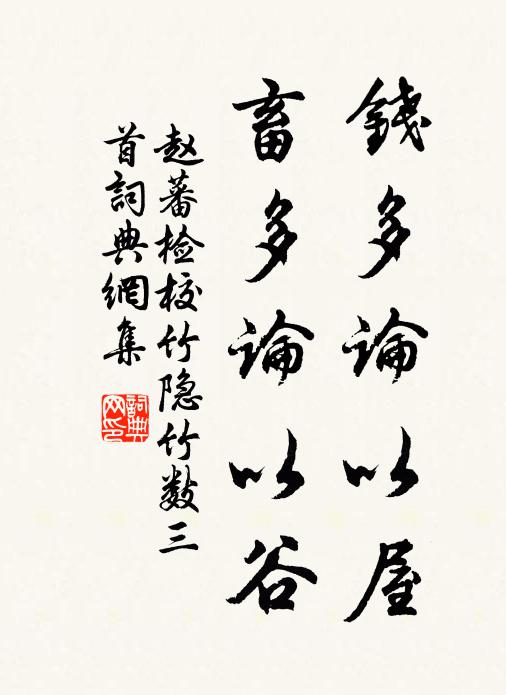 錢多論以屋
畜多論以谷
赵蕃检校竹隐竹数三
首詞典網集
詞典
网印